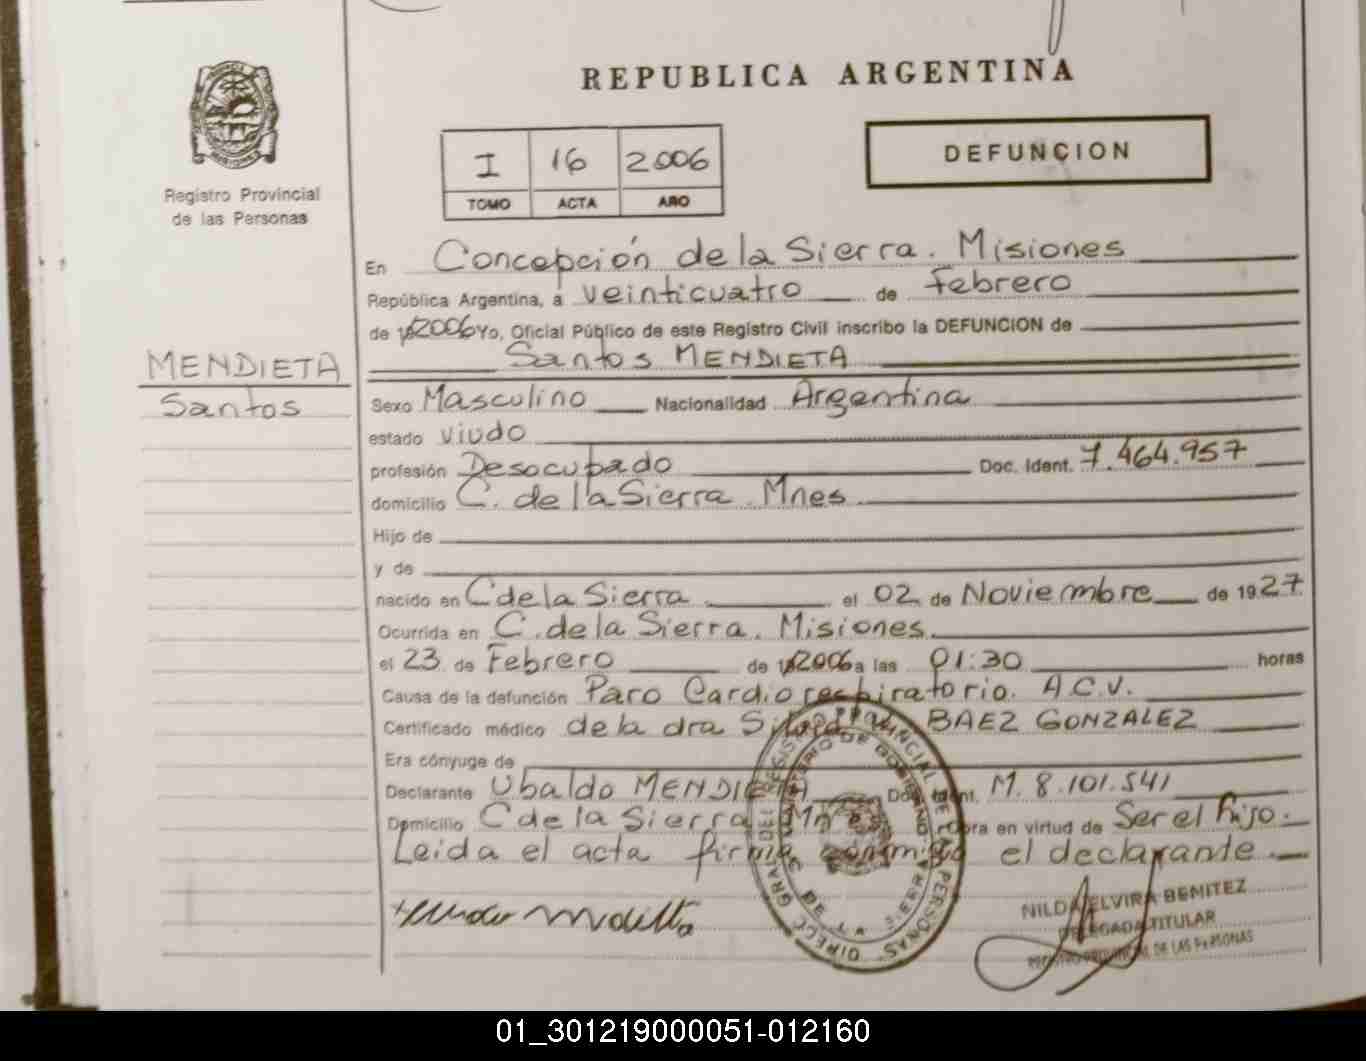 REPUBLICA ARGENTINA
I 16 2006
TOMO ACTA AÑO
DEFUNCION
Registro Provincial
de las Personas
MENDIETA
Santos
En Concepción de la Sierra. Misiones
República Argentina, a veinticuatro de Febrero
de 2006 Yo, Oficial Público de este Registro Civil inscribo la DEFUNCION de
Santos MENDIETA
Sexo Masculino Nacionalidad Argentina
estado viudo
profesión Desocupado Doc. Ident. 7.464.957
domicilio C. de la Sierra. Mnes
Hijo de
y de
nacido en C de la Sierra el 02 de Noviembre de 1927.
Ocurrida en C. de la Sierra. Misiones
el 23 de Febrero de 2006 a las 01:30 horas
Causa de la defunción Paro Cardiorespiratorio. A.C.V.
Certificado médico de la dra BAEZ GONZALEZ
Era cónyuge de
Declarante Ubaldo MENDIETA Doc. Ident. M. 8.101.541
Domicilio C de la Sierra Mnes Obra en virtud de Ser el hijo.
Leida el acta firma conmigo el declarante
NILDA ELVIRA BENITEZ
DELEGADA TITULAR
REGISTRO PROVINCIAL DE LAS PERSONAS
01_301219000051-012160